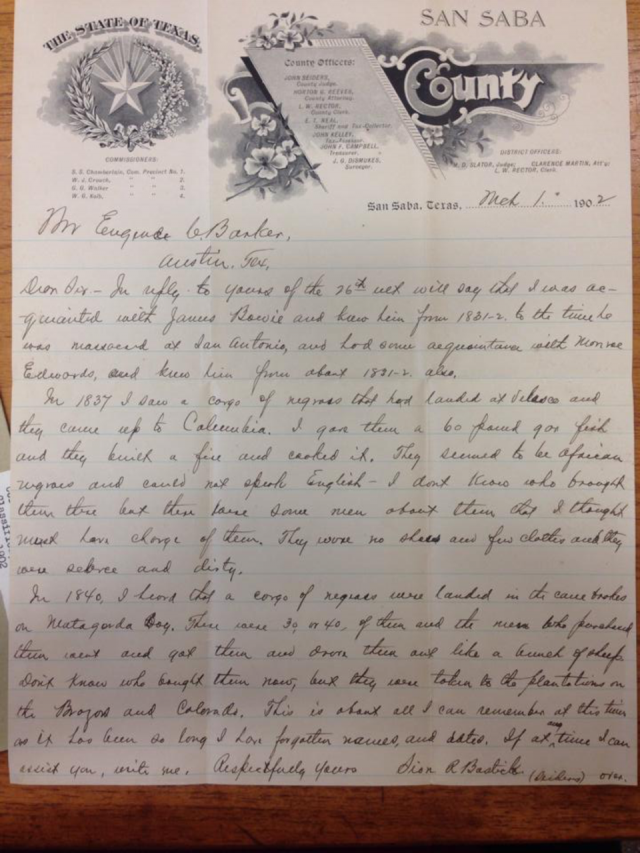 THE STATE OF TEXAS.
COMMISSIONERS:
S. E. Chamberlain, Com. Precinct No. 1.
W. J. Crouch, " " 2.
G. B. Walker " " 3.
W. G. Kolb, " " 4.
SAN SABA
County
County Officers:
JOHN SEIDERS,
County Judge.
HORTON B. REEVES,
County Attorney.
L. W. RECTOR,
County Clerk.
E. T. NEAL,
Sheriff and Tax-Collector.
JOHN KELLEY,
Tax-Assessor.
JOHN F. CAMPBELL,
Treasurer.
J. G. DISMUKES,
Surveyor.
DISTRICT OFFICERS:
D. SLATOR, Judge; CLARENCE MARTIN, Att'y.
L. W. RECTOR, Clerk.
San Saba, Texas, Mch 1. 1902
Mr Eugene C. Barker,
Austin, Tex.
Dear Sir - In reply to yours of the 26th will say that I was ac-
quainted with James Bowie and knew him from 1831-2. to the time he
was massacred at San Antonio, and had some acquaintance with Monroe
Edwards, and knew him from about 1831-2. also.
In 1837 I saw a cargo of negroes that had landed at Velasco and
they came up to Columbia. I gave them a 60 pound gar fish
and they built a fire and cooked it. They seemed to be african
negroes and could not speak English - I dont know who brought
them there but there were some men about them that I thought
must have charge of them. They wore no shoes and few clothes and they
were and dirty.
In 1840, I heard that a cargo of negroes were landed in the cane brakes
on Matagorda Bay. There were 30, or 40, of them and the men who purchased
them went and got them and drove them out like a bunch of sheep.
Dont know who bought them now, but they were taken to the plantations on
the Brazos and Colorado. This is about all I can remember at this time
as it has been so long I have forgotten names, and dates. If at any time I can
assist you, write me. Respectfully yours Sion R Bostick (Seiders) over.